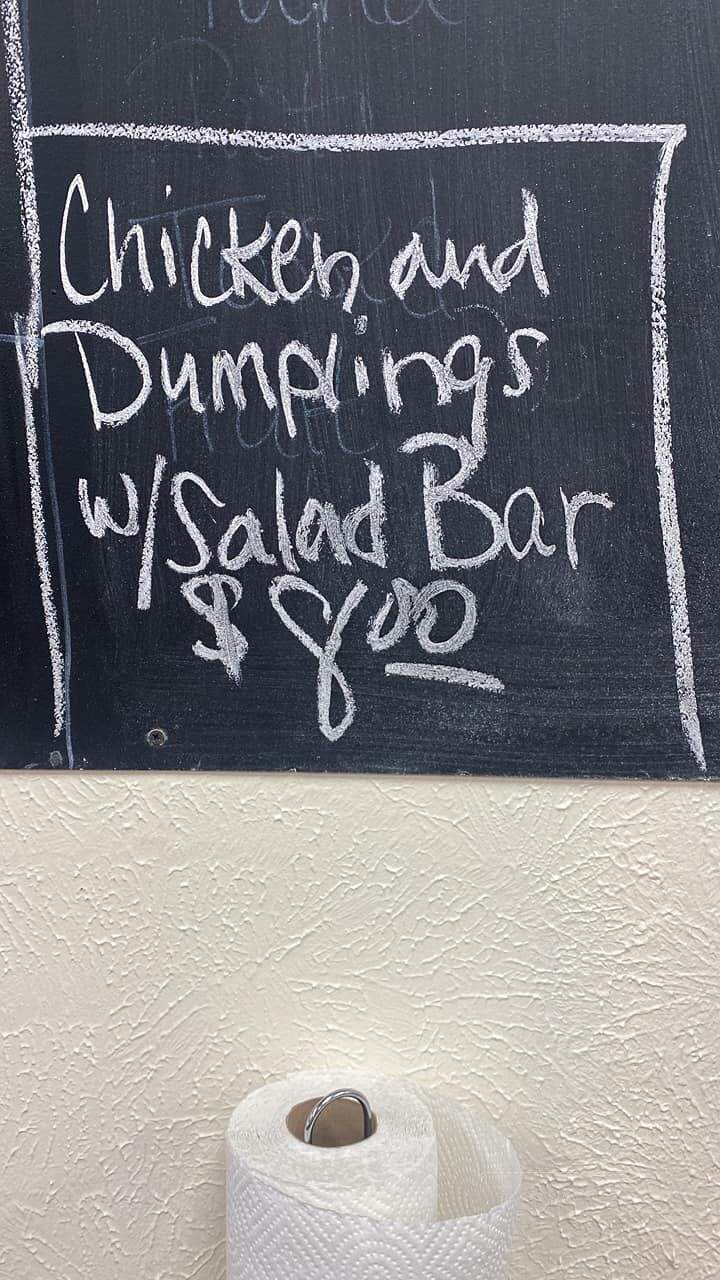 Chicken and
Dumplings
w/Salad Bar
$8.00